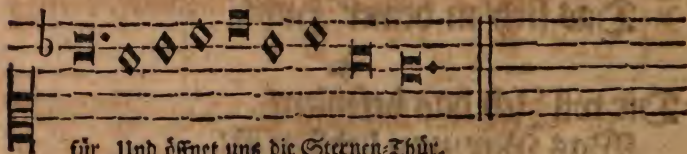 für Und öffnet uns die Sternen-Thür.